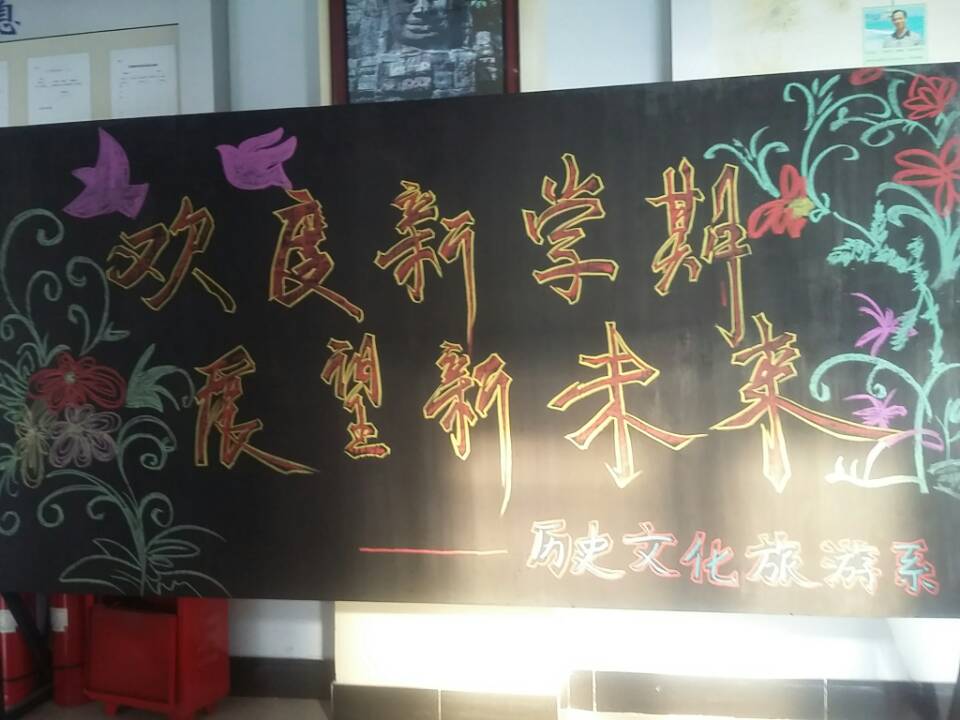 息
欢度新学期
展望新未来
——历史文化旅游系